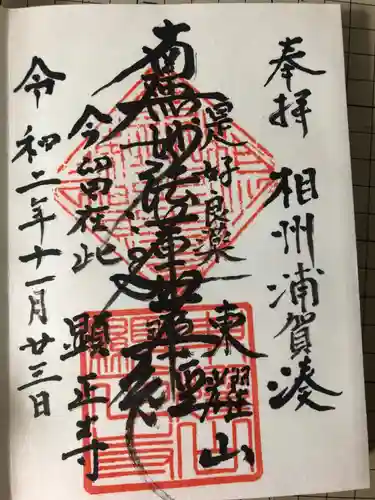 奉拝 相州浦賀湊
是好良薬 東耀山
南無妙法蓮華経
今留在此 顕正寺
令和二年十一月廿三日